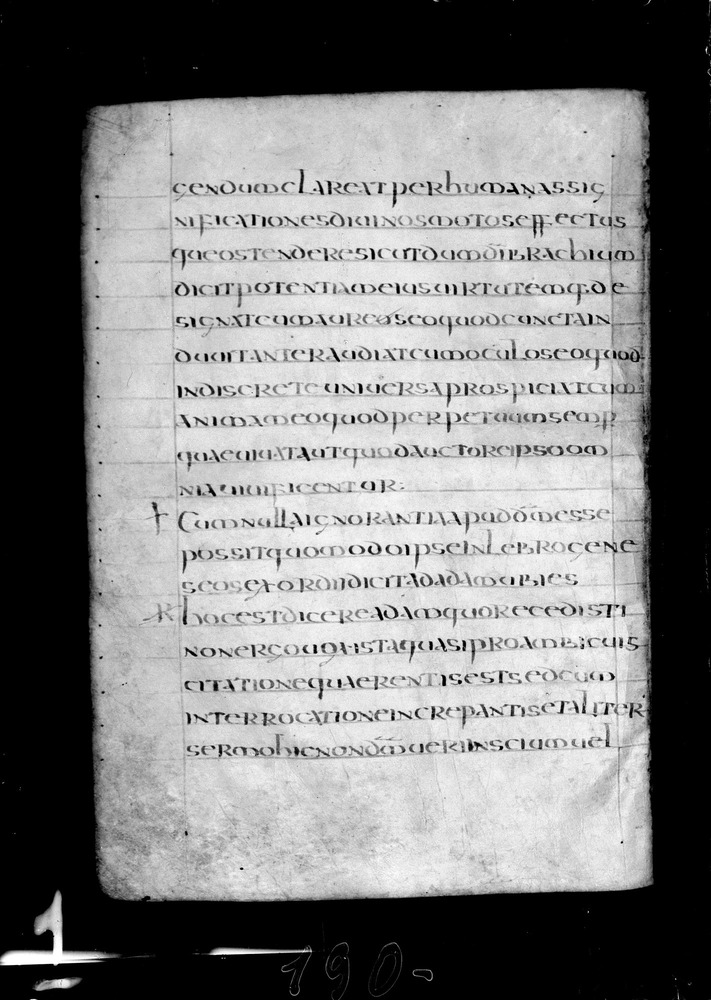 gendumclareatperhumanassig
nificationesdiuinosmotoseffectus
queostenderesicutdumdīibrachium
dicitpotentiameiusuirtutēmq·de
signatcumaureseoquodcunctain
dubitanteraudiatcumoculoseoquod
indiscreteuniuersaprospiciatcum
animameoquodperpetuumsemp
quaeuiuatautquodauctoreipsoom
niauiuificentur:
† Cumnullaignorantiaapuddn̄messe
possitquomodoipseinlebrogene
seosexordiidicitadadamubies
R hocestdicereadamquorecedisti
nonergouoxistaquasiproambicuis
citationequaerentisestsedcum
interrocationeincrepantisetaliter
sermohicnondūmuerinsciumuel
190-
1